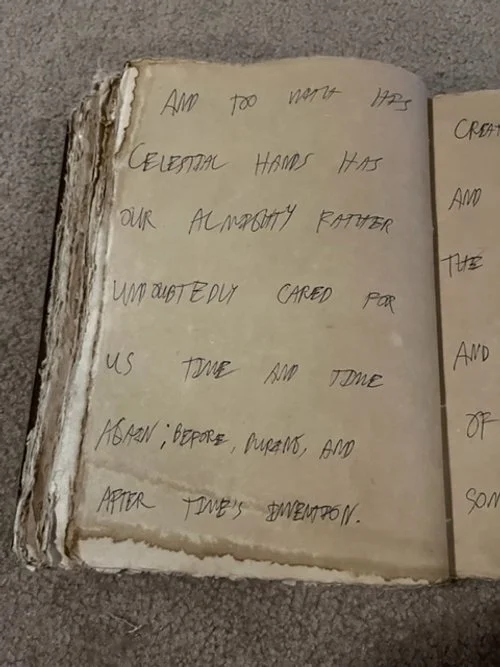 AND TO WITH HIS
CELESTIAL HANDS HAS
OUR ALMIGHTY FATHER
UNDOUBTEDLY CARED FOR
US TIME AND TIME
AGAIN; BEFORE, DURING, AND
AFTER TIME'S INVENTION.
AND
THE
AND
OF